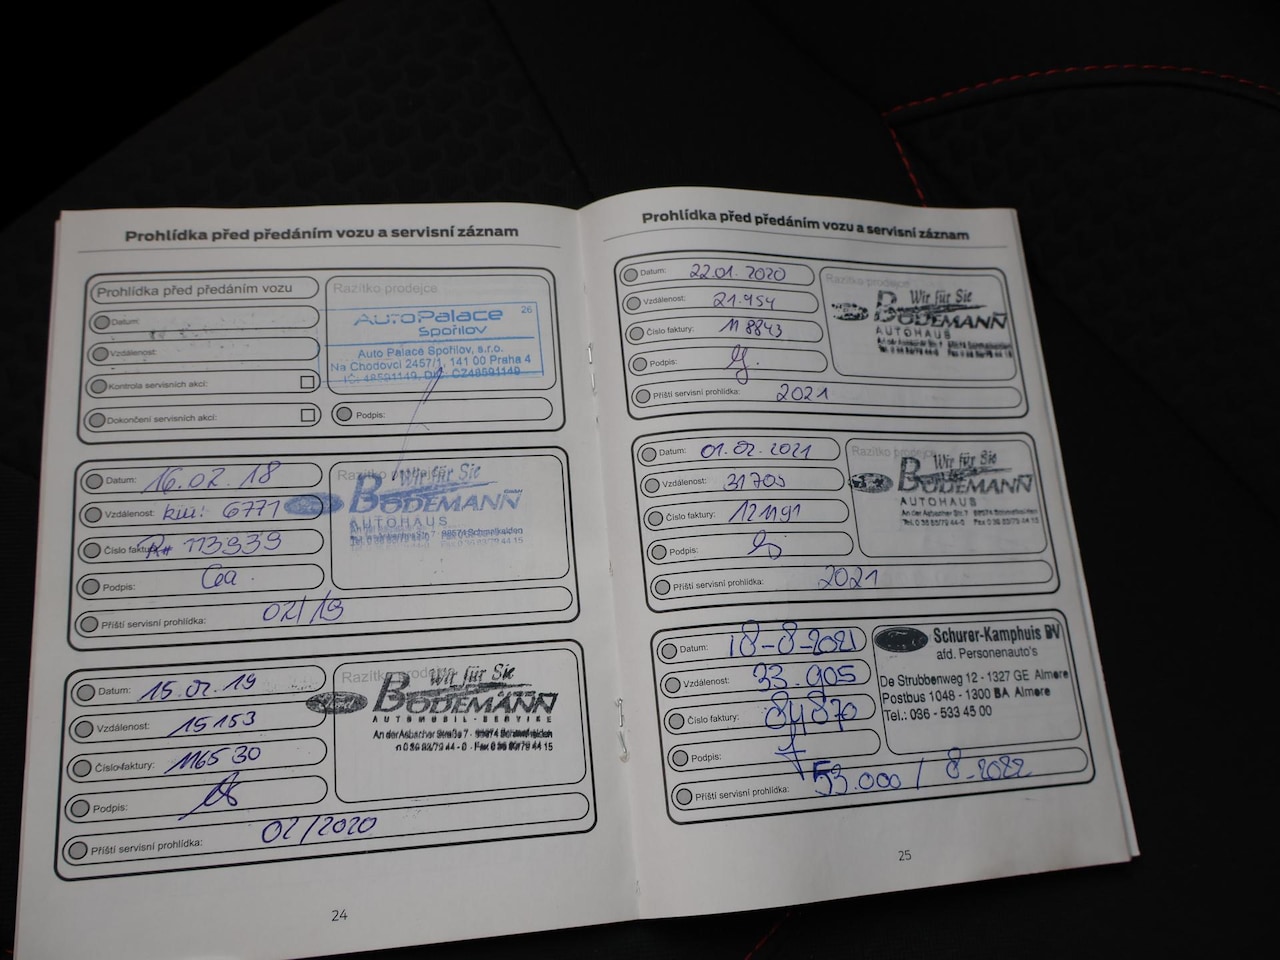 Prohlídka před předáním vozu a servisní záznam
Prohlídka před předáním vozu
Datum:
Vzdálenost:
Kontrola servisních akcí:
Dokončení servisních akcí:
Razítko prodejce
26
AUTOPALACE
Spořilov
Auto Palace Spořilov, s.r.o.
Na Chodovci 2457/1, 141 00 Praha 4
IČ: 48591149, DIČ: CZ48591149
Podpis:
Datum: 16.02.18
Vzdálenost: km: 6771
Číslo faktury: R# 113939
Podpis:
Příští servisní prohlídka: 02/19
Razítko prodejce
Wir für Sie
BODEMANN GmbH
AUTOHAUS
An der Asbacher Str. 7 · 98574 Schmalkalden
Datum: 15.02.19
Vzdálenost: 15153
Číslo faktury: 116530
Podpis:
Příští servisní prohlídka: 02/2020
Razítko prodejce
Ford
Wir für Sie
BODEMANN
AUTOMOBIL-SERVICE
An der Asbacher Straße 7 · 98574 Schmalkalden
0 36 83/79 44-0 · Fax 0 36 83/79 44 15
24
Prohlídka před předáním vozu a servisní záznam
Datum: 22.01.2020
Vzdálenost: 21.954
Číslo faktury: 118843
Podpis:
Příští servisní prohlídka: 2021
Razítko prodejce
Wir für Sie
BODEMANN
AUTOHAUS
Datum: 01.02.2021
Vzdálenost: 31705
Číslo faktury: 121191
Podpis:
Příští servisní prohlídka: 2021
Razítko prodejce
Wir für Sie
BODEMANN
AUTOHAUS
An der Asbacher Str. 7 · 98574 Schmalkalden
Tel. 0 36 83/79 44-0 Fax 0 36 83/79 44 15
Datum: 18-8-2021
Vzdálenost: 33.905
Číslo faktury: 84870
Podpis:
Příští servisní prohlídka: 53.000 / 8-2022
Schurer-Kamphuis BV
afd. Personenauto's
De Strubbenweg 12 - 1327 GE Almere
Postbus 1048 - 1300 BA Almere
Tel.: 036 - 533 45 00
25